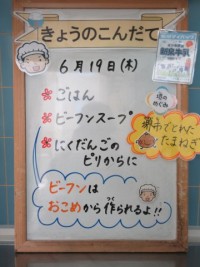 きょうのこんだて
6月19日(木)
ごはん
ビーフンスープ
にくだんごの
ピリからに
堺の
めぐみ
堺市でとれた
たまねぎ
ビーフンは
おこめから作られるよ!!